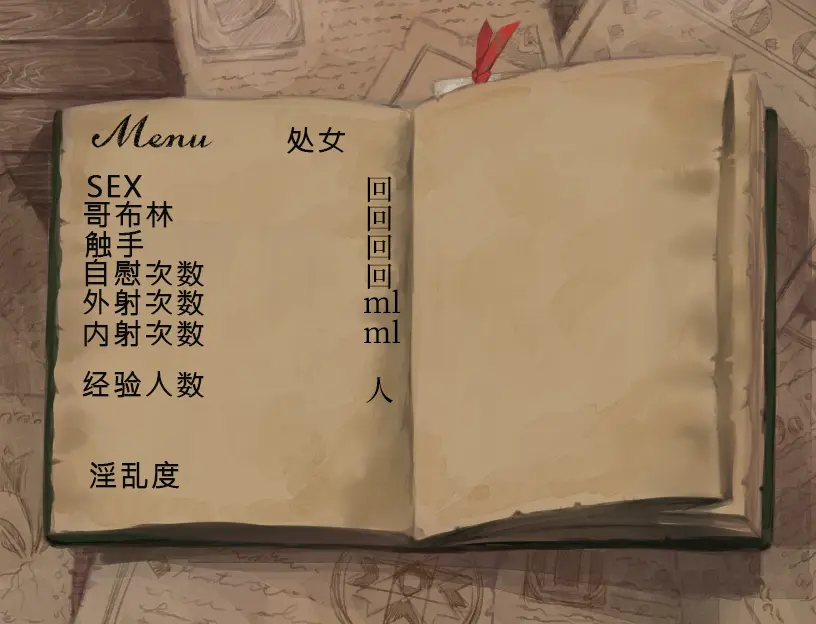 Menu 处女
SEX 回
哥布林 回
触手 回
自慰次数 回
外射次数 ml
内射次数 ml
经验人数 人
淫乱度